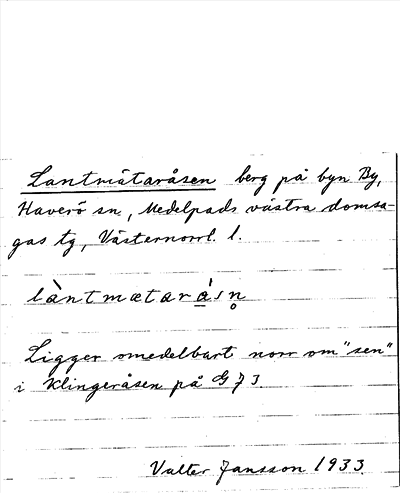 Lantmätaråsen berg på byn By,
Haverö sn, Medelpads västra domsa-
gas tg, Västernorrl. l.
làntmætará̱sn̥
Ligger omedelbart norr om "sen"
i Klingeråsen på G73.
Valter Jansson 1933.